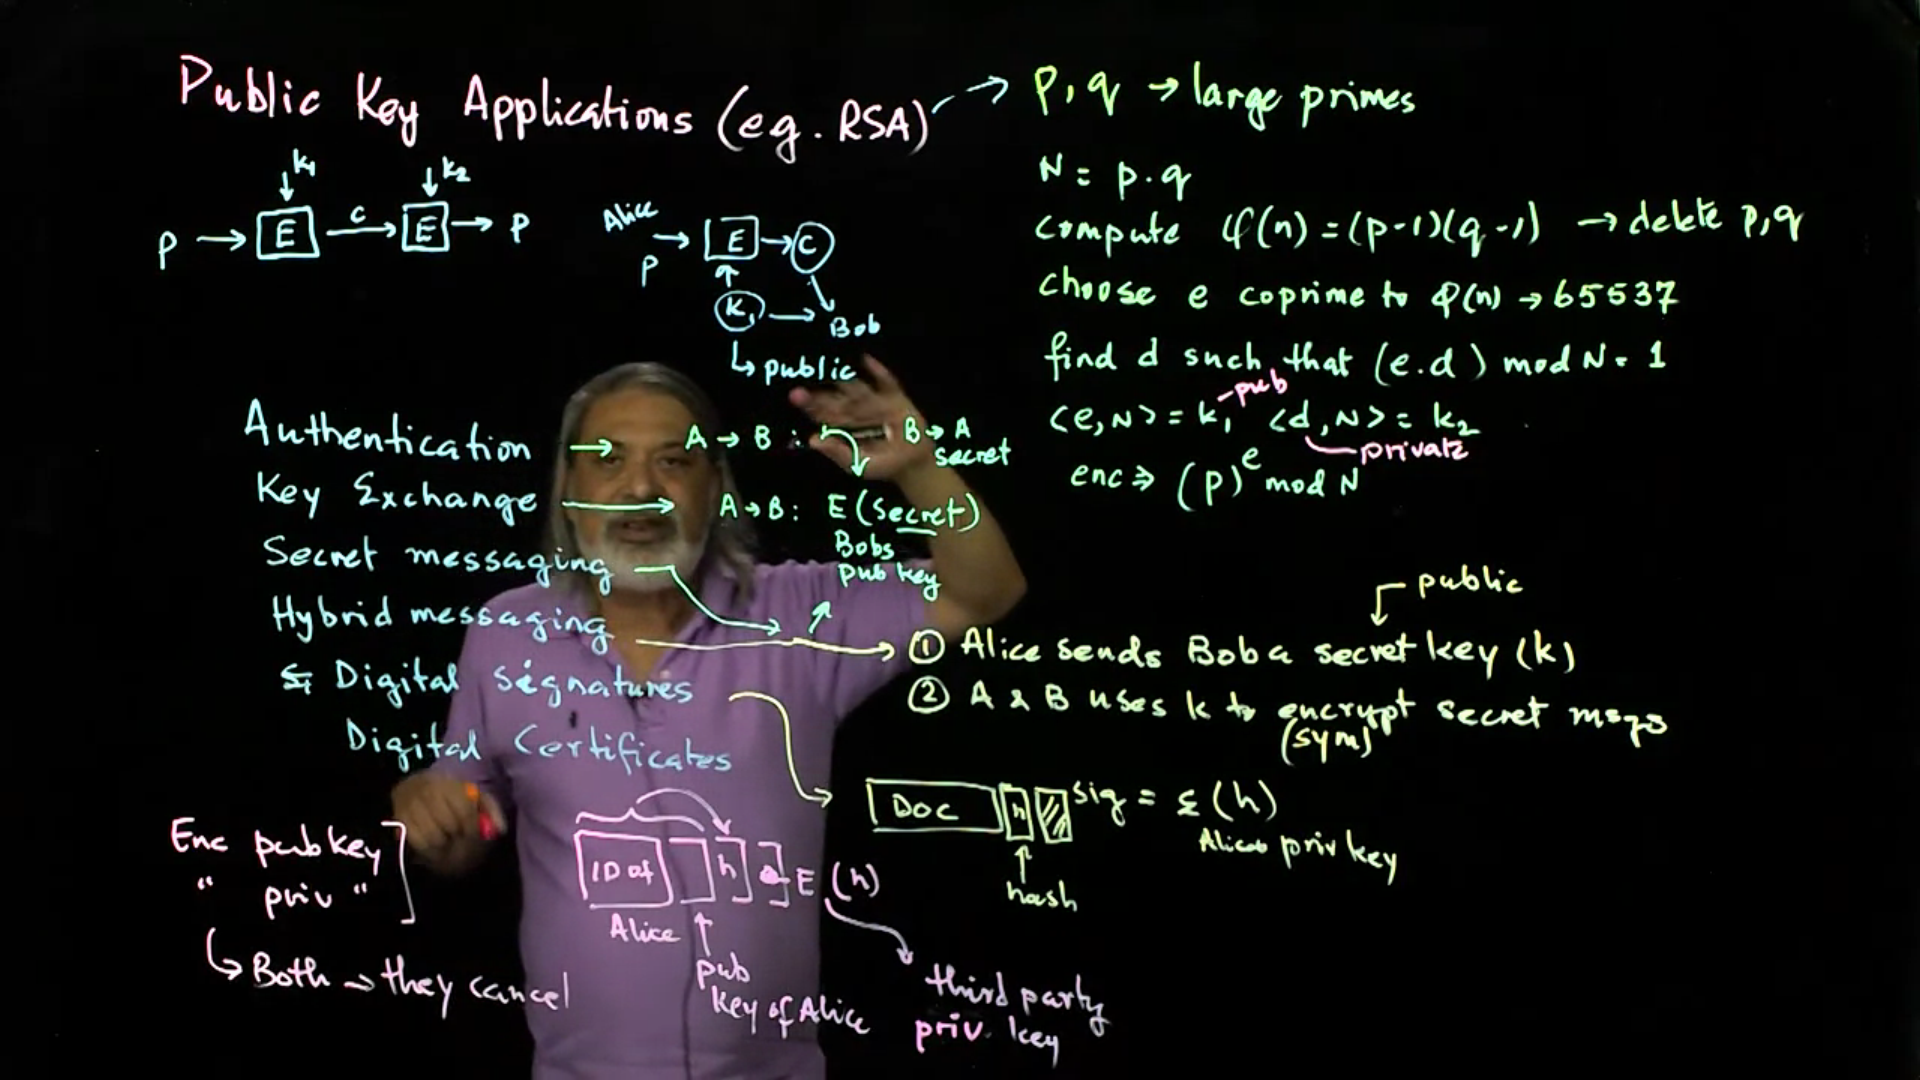 Public Key Applications (eg. RSA) → p, q → large primes
k1 k2
p → E → c → E → p
Alice
p → E → C
K1 → Bob
↳ public
N = p.q
compute φ(n) = (p-1)(q-1) → delete p,q
choose e coprime to φ(n) → 65537
find d such that (e.d) mod N = 1
<e,N> = k1 - pub <d,N> = k2
private
enc ⇒ (p)^e mod N
Authentication → A → B : B → A
secret
Key Exchange → A → B : E (secret)
Bobs
pub key
Secret messaging
Hybrid messaging
Digital signatures
Digital Certificates
public
① Alice sends Bob a secret key (k)
② A & B uses k to encrypt secret msgs
(sym)
DOC h sig = E (h)
Alices priv key
hash
Enc pub key
" priv "
↳ Both → they cancel
ID of h E (h)
Alice
pub
key of Alice
third party
priv. key